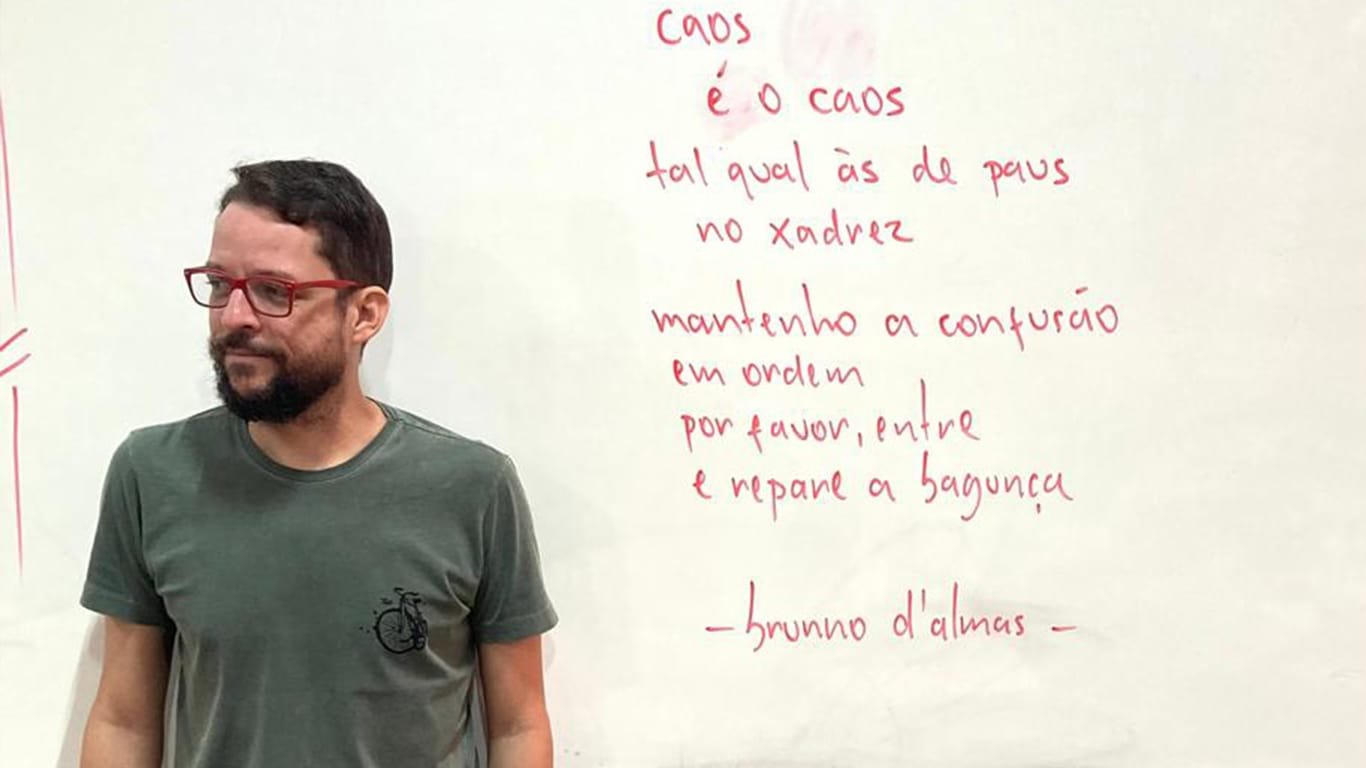 caos
é o caos
tal qual às de paus
no xadrez
mantenho a confusão
em ordem
por favor, entre
e repare a bagunça
- brunno d'almas -